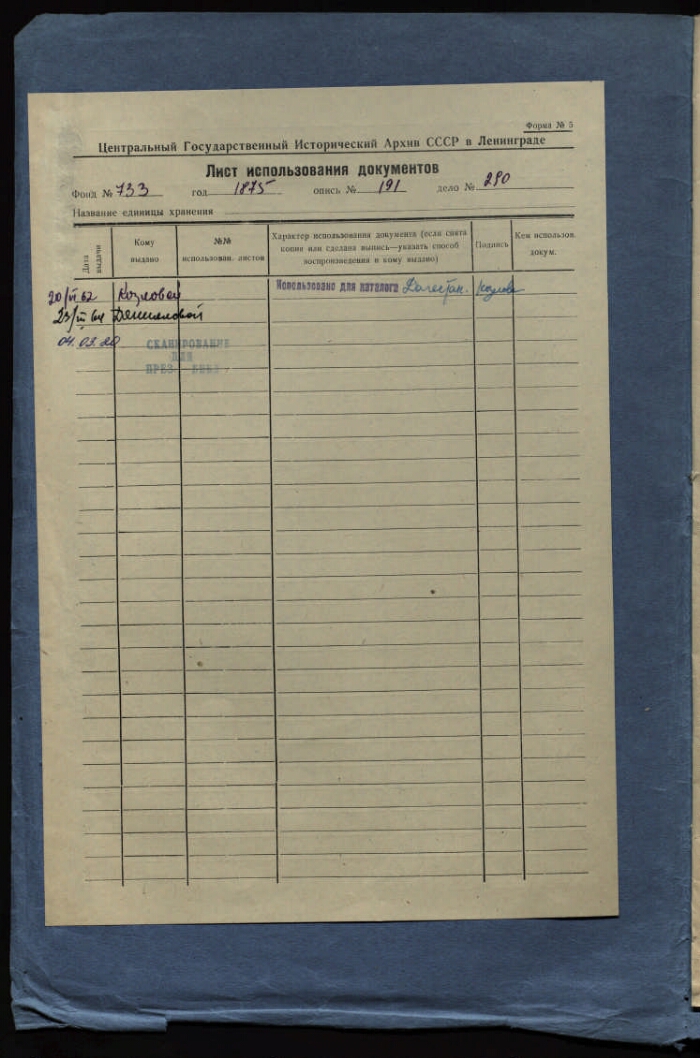 Форма № 5
Центральный Государственный Исторический Архив СССР в Ленинграде
Лист использования документов
Фонд № 733 год 1875 опись № 191 дело № 290
Название единицы хранения
Дата выдачи
Кому выдано
№№ использован. листов
Характер использования документа (если снята копия или сделана выпись—указать способ воспроизведения и кому выдано)
Подпись
Кем использов. докум.
20/VI 62 Козловой Использовано для каталога Дагестан. Козлова
23/III 64 Данииловой
04. 02 20
СКАНИРОВАНИЕ
ДЛЯ
ПРЕЗ